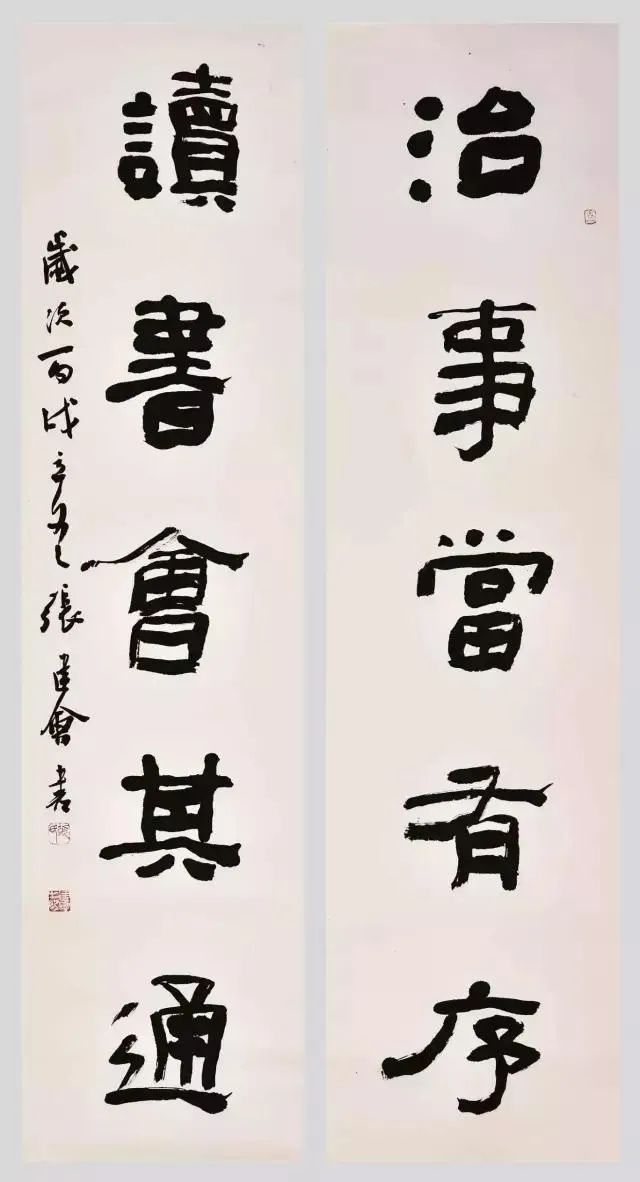 治事當有序
讀書會其通
歲次丙戌立夏張建會書